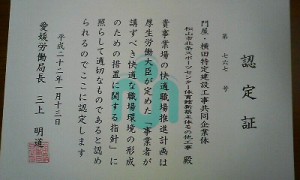 認定証
第 七六七 号
門屋・横田特定建設工事共同企業体
松山市北条スポーツセンター体育館新築主体その他工事 殿
貴事業場の快適職場推進計画は
厚生労働大臣が定めた「事業者が
講ずべき快適な職場環境の形成
のための措置に関する指針」に
照らして適切なものであると認め
られるのでここに認定します
平成二十二年一月十三日
愛媛労働局長 三上 明道